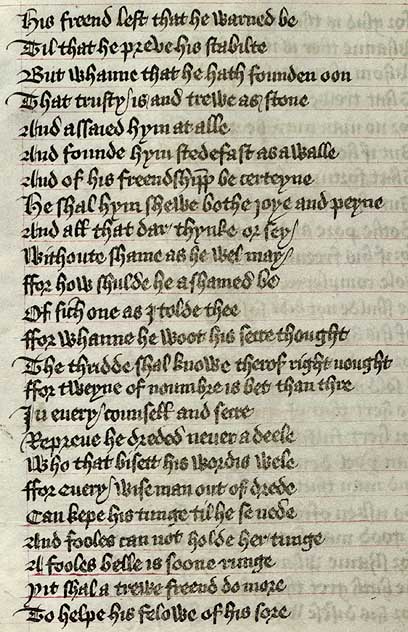 His freend left that he warned be
Til that he preve his stabilte
But whanne that he hath founden oon
That trusty is and trewe as stone
And assaied hym at alle
And founde hym stedefast as a walle
And of his freendshipp be certeyne
He shal hym shewe bothe joye and peyne
And all that dar thynke or sey
Withoute shame as he wel may
ffor how shulde he ashamed be
Of sich one as I tolde thee
ffor whanne he woot his secre thought
The thridde shal knowe therof right nought
ffor tweyne of noumbre is bet than thre
In every counsell and secre
Repreve he dreded never a deele
Who that bisett his wordis wele
ffor every wise man out of drede
Can kepe his tunge til he se nede
And fooles can not holde her tunge
A fooles belle is soone runge
Yit shal a trewe freend do more
To helpe his felowe of his sore